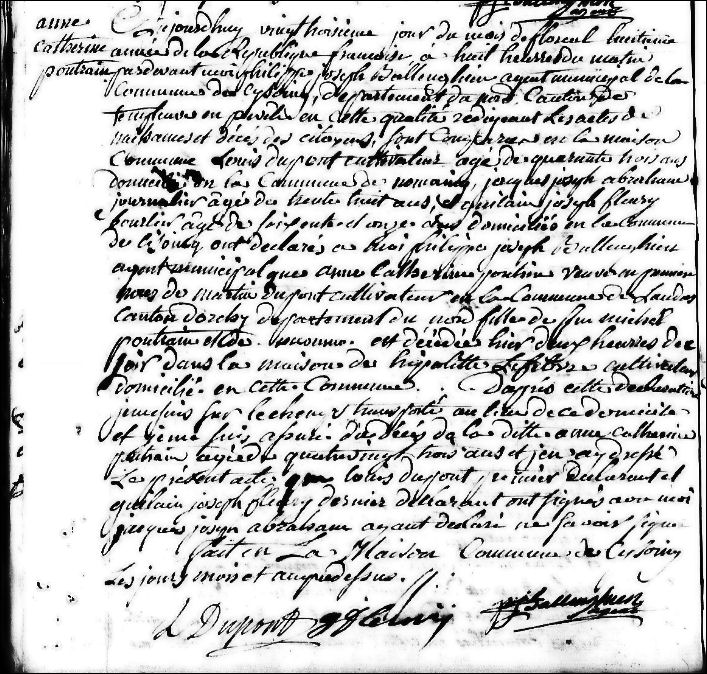 anne
Catherine
poutrain
Cejourdhuy vingtroisieme jour du mois de floreal huitieme
année de la Republique francoise a huit heures du matin
pardevant moi philippe joseph Ballenghien agent municipal de la
Commune de Cysoing, departement du nord, Canton de
templeuve en pevele en cette qualité redigeant les actes de
naissances et décés des citoyens, sont Comparu en la maison
Commune Louis dupont cultivateur agé de quarante trois ans
domicilié en la Commune de nomain, jacques joseph abraham
journalier agé de trente huit ans, et guilain joseph fleury
agé de soixante et onze ans domiciliés en la Commune
de Cisoing ont declarés a moi philippe joseph Ballenghien
agent municipal que anne Catherine poutrain veuve en premier
de martin dupont cultivateur en la Commune de Landas
Canton dorchy departement du nord fille de feu michel
poutrain et de est décédée hier deux heures de
dans la maison de hipolitte Lefebvre cultivateur
domicilié en cette Commune. Dapres cette declaration
je me suis sur le champ transporté au lieu de ce domicile
et je me suis assuré du décés de la ditte anne catherine
poutrain agée de quatre vingt trois ans et jen ay dressé
Le présent acte que louis dupont premier declarant et
guilain joseph fleury dernier declarant ont signés avec moi
jacques joseph abraham ayant declaré ne savoir signer
fait en La Maison Commune de Cisoing
Les jours mois et an que dessus.
L Dupont g j fleurij Ballenghien
agent